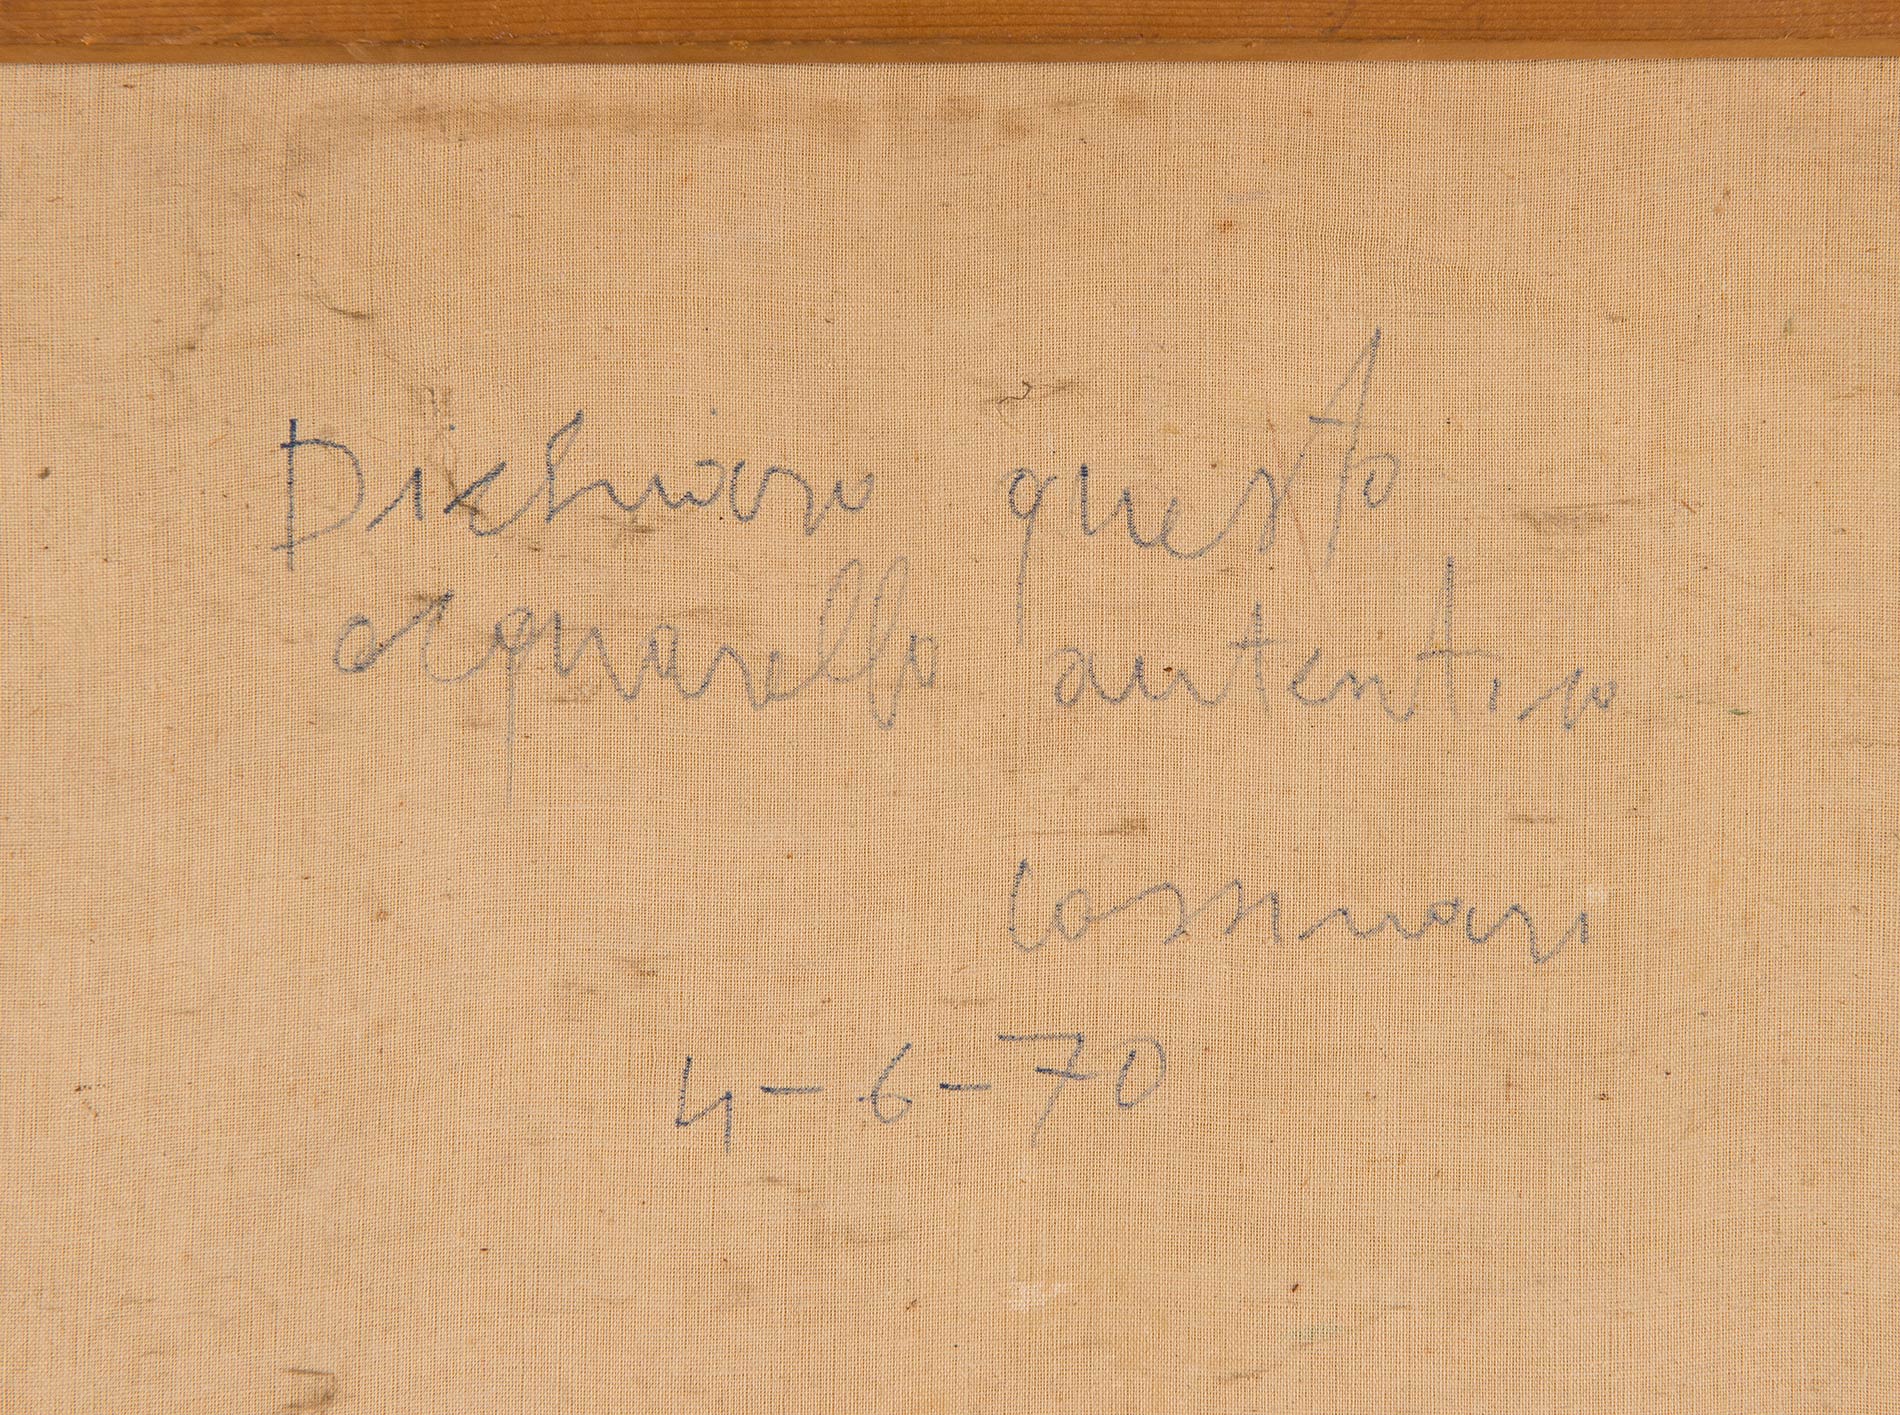 Dichiaro questo
acquarello autentico
Cassinari
4-6-70